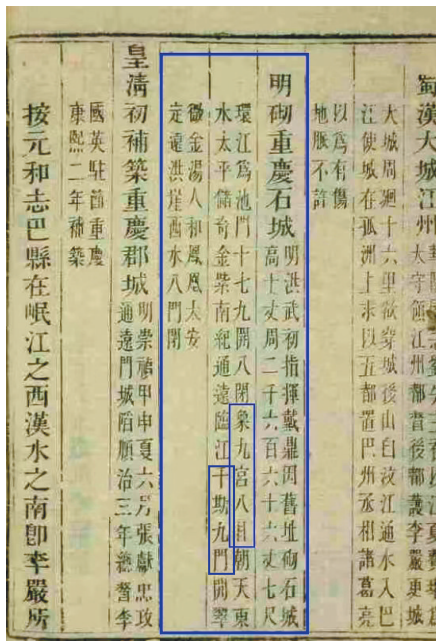 蜀漢大城江州
太守領江州都督後都護李嚴更城
大城周廻十六里欲穿城後山自汶江通水入巴
江使城在孤洲上求以五郡置巴州丞相諸葛亮
以爲有傷
地脈不許
明砌重慶石城
明洪武初指揮戴鼎因舊址砌石城
高十丈周二千六百六十六丈七尺
環江爲池門十七九開八閉象九宮八卦朝天東
水太平儲奇金紫南紀通遠臨江千斯九門開翠
微金湯人和鳳凰太安
定遠洪崖西水八門閉
皇清初補築重慶郡城
明崇禎甲申夏六月張獻忠攻
通遠門城陷順治三年總督李
國英駐節重慶
康熙二年補築
按元和志巴縣在岷江之西漢水之南卽李嚴所